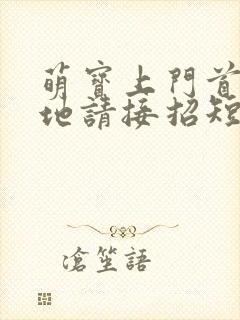 萌寶上門首
地請接招短
滄笙語